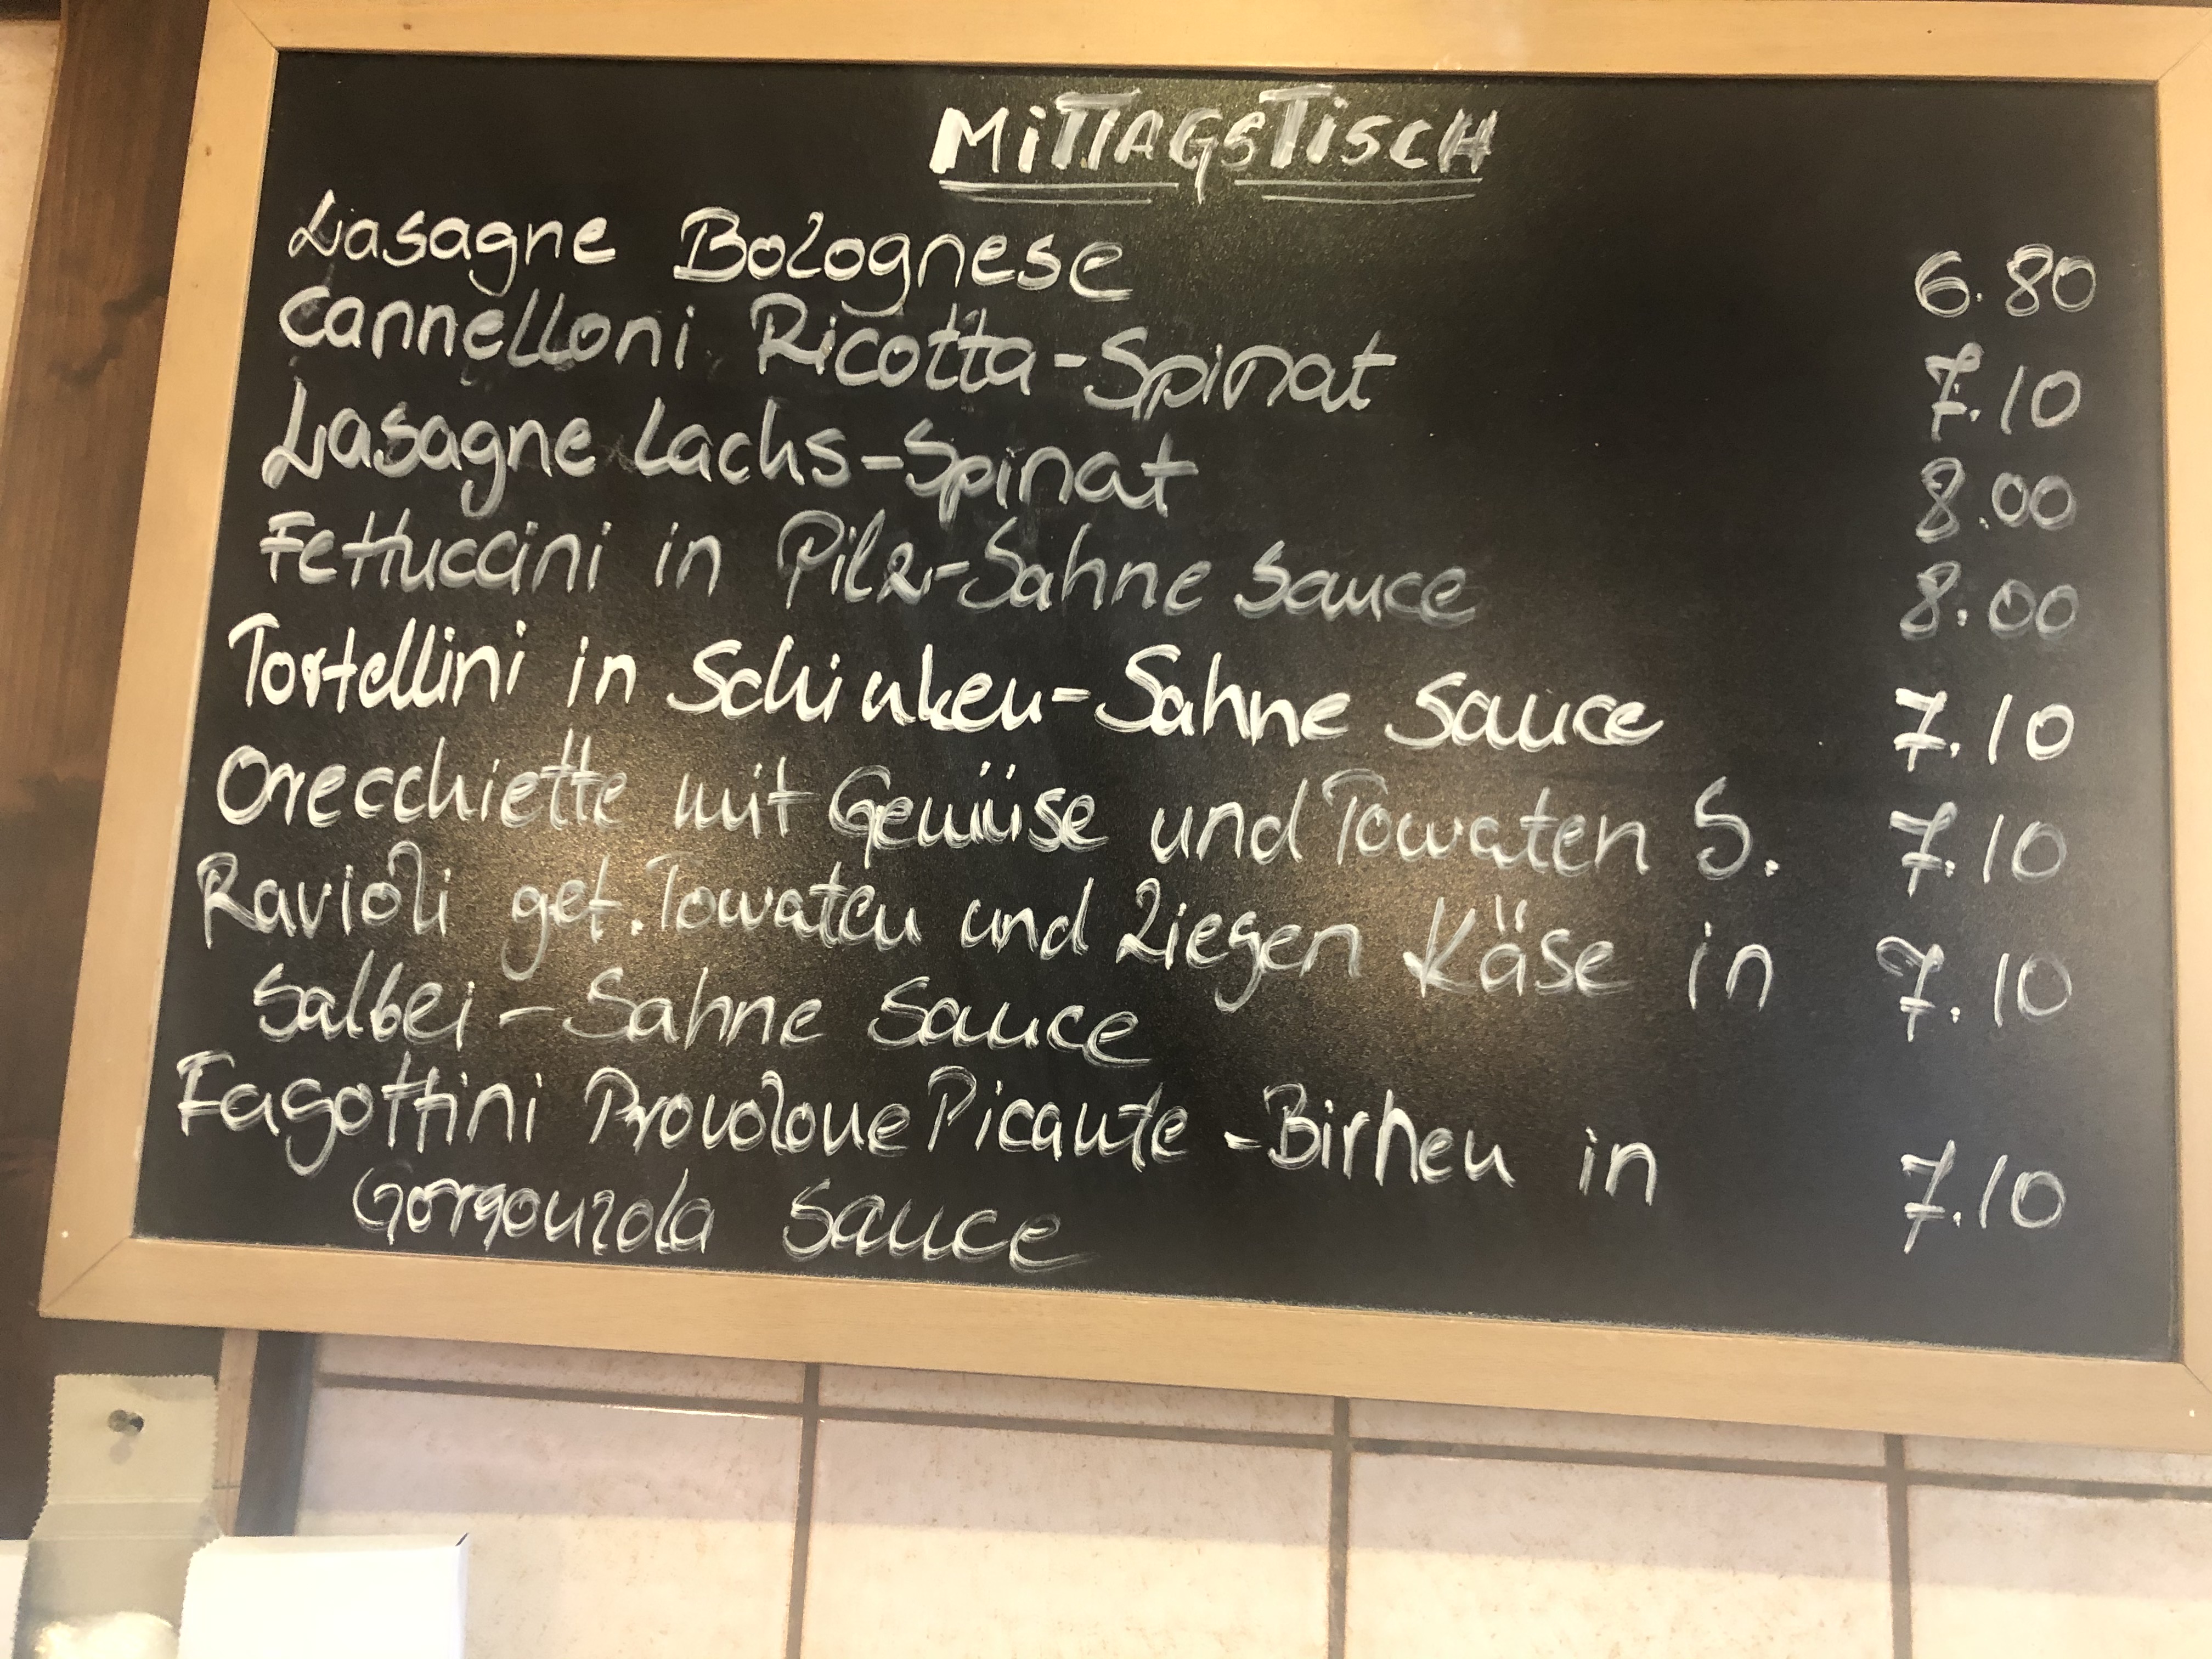 MiTTAGSTiSCH
Lasagne Bolognese 6.80
Cannelloni Ricotta-Spinat 7.10
Lasagne Lachs-Spinat 8.00
Fettuccini in Pilz-Sahne Sauce 8.00
Tortellini in Schinken-Sahne Sauce 7.10
Orecchiette mit Gemüse und Tomaten S. 7.10
Ravioli get. Tomaten und Ziegen Käse in 7.10
Salbei-Sahne Sauce
Fagottini Provolone Picante-Birnen in 7.10
Gorgonzola Sauce